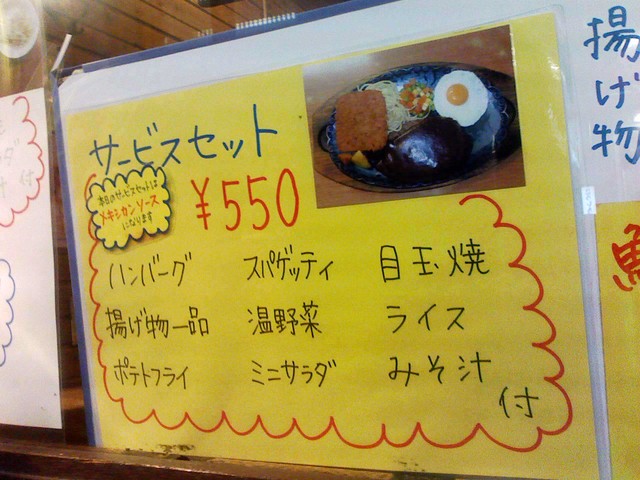 サービスセット
本日のサービスセットは
メキシカンソース
になります
¥550
ハンバーグ スパゲッティ 目玉焼
揚げ物一品 温野菜 ライス
ポテトフライ ミニサラダ みそ汁
付
揚げ物